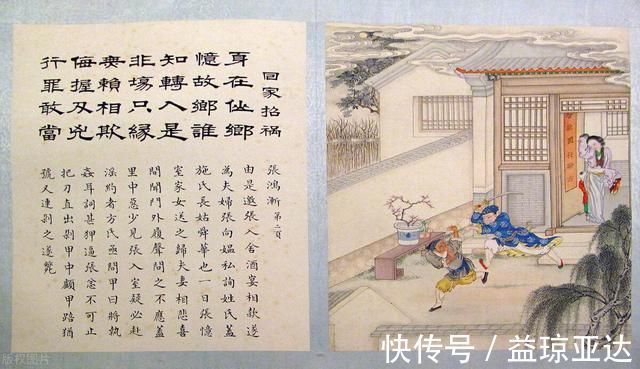 回家招禍
身在仙鄉
憶故鄉誰
知轉入是
非場只緣
無賴相欺
侮握刃兇
行罪敢當
張鴻漸 第二頁
由是邀張入舍酒宴相款遂
為夫婦張向媼私詢姓氏蓋
施氏長姑舜華也一日張憶
室家女送之歸夫妻相悲喜
間聞門外履聲問之不應蓋
里中惡少見張入室疑必赴
淫約者方氏亟問甲曰將執
姦耳詞甚狎逼張忿不可止
把刀直出剁甲中顱甲踣猶
號又連剁之遂斃
版权图片
快传号 / 益琼亚达